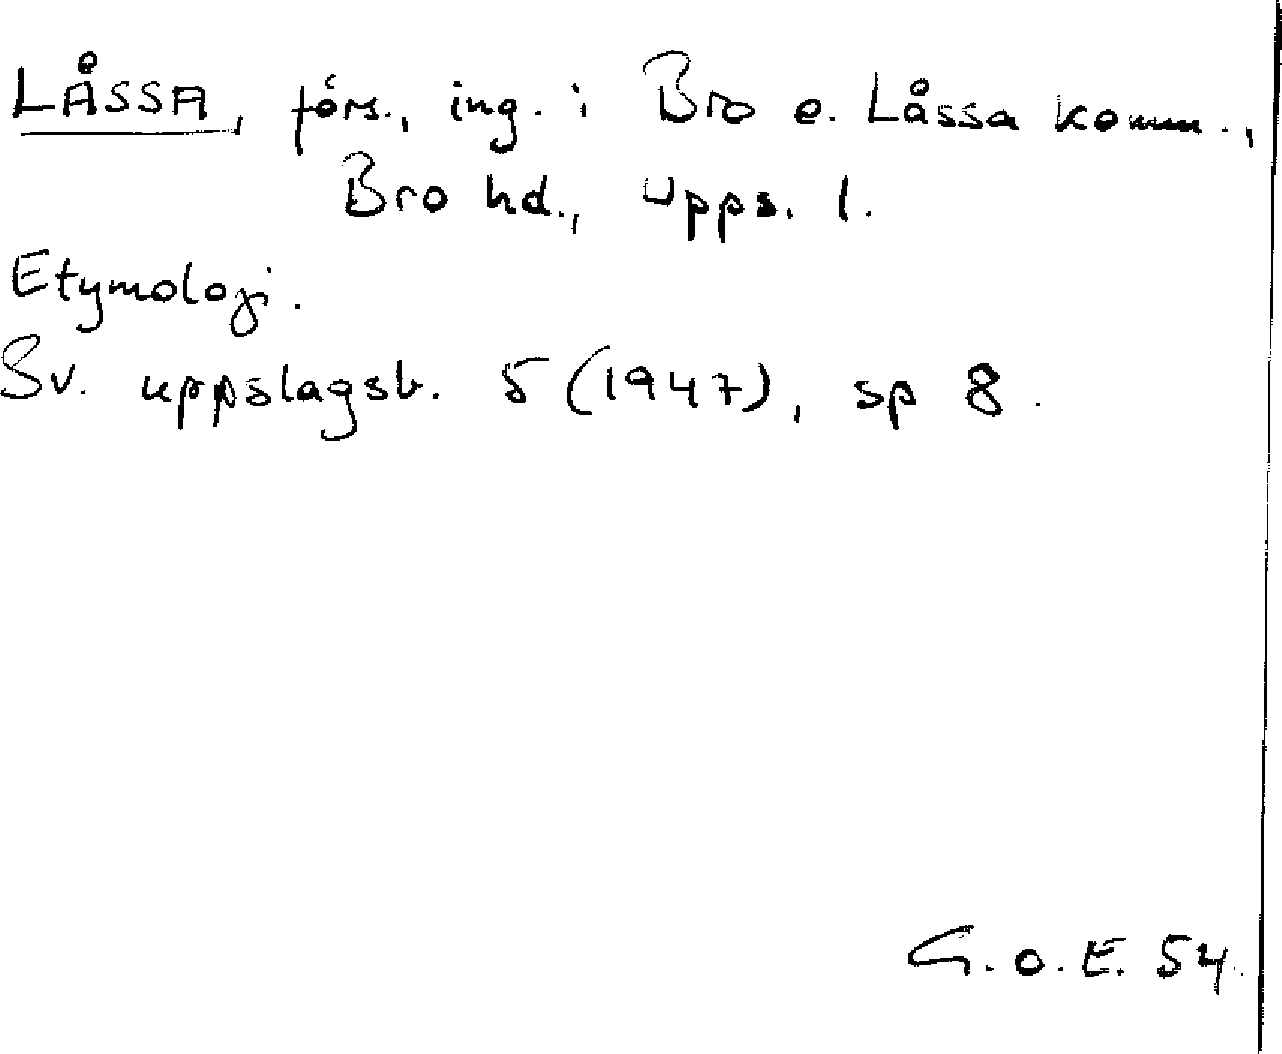 LÅSSA, förs., ing. i Bro o. Låssa komm.,
Bro hd., Upps. l.
Etymologi.
Sv. uppslagsb. 5 (1947), sp 8.
G.O.E. 54.